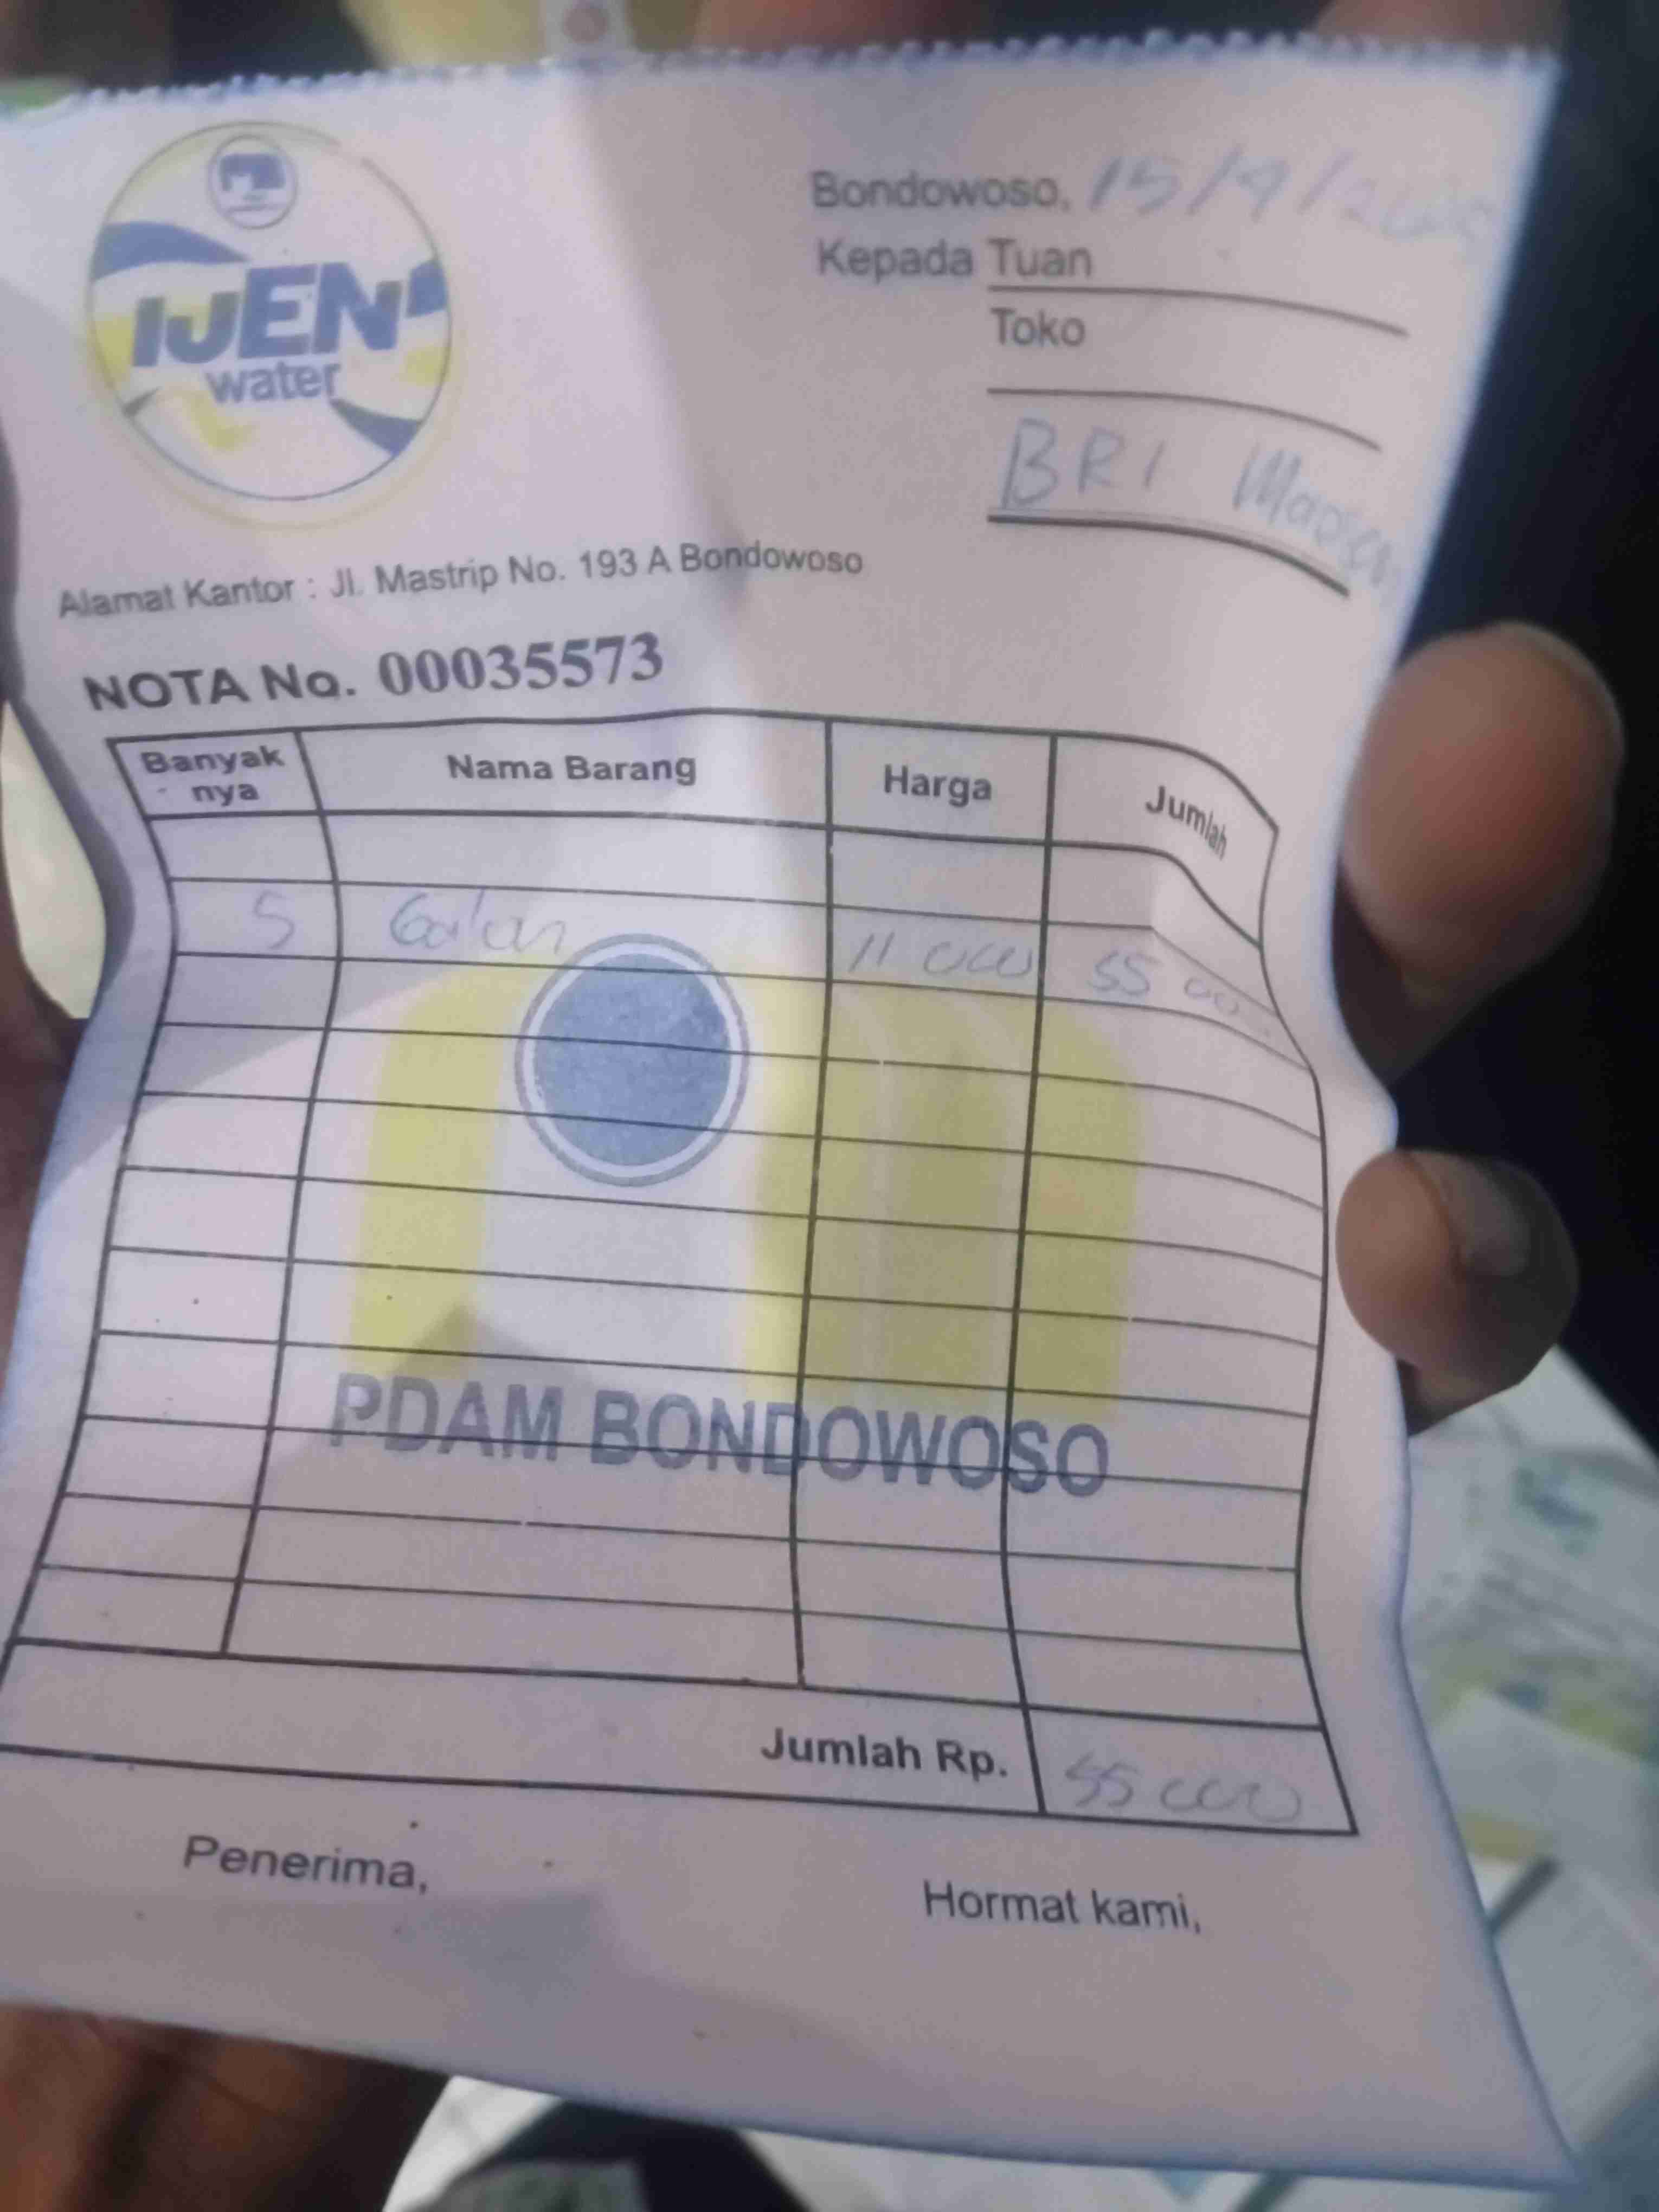 IJEN
water
Bondowoso, 15/9/
Kepada Tuan
Toko
BRI
Alamat Kantor : Jl. Mastrip No. 193 A Bondowoso
NOTA No. 00035573
Banyak nya Nama Barang Harga Jumlah
5 Galon 11 000 55 000
PDAM BONDOWOSO
Jumlah Rp. 55 000
Penerima,
Hormat kami,